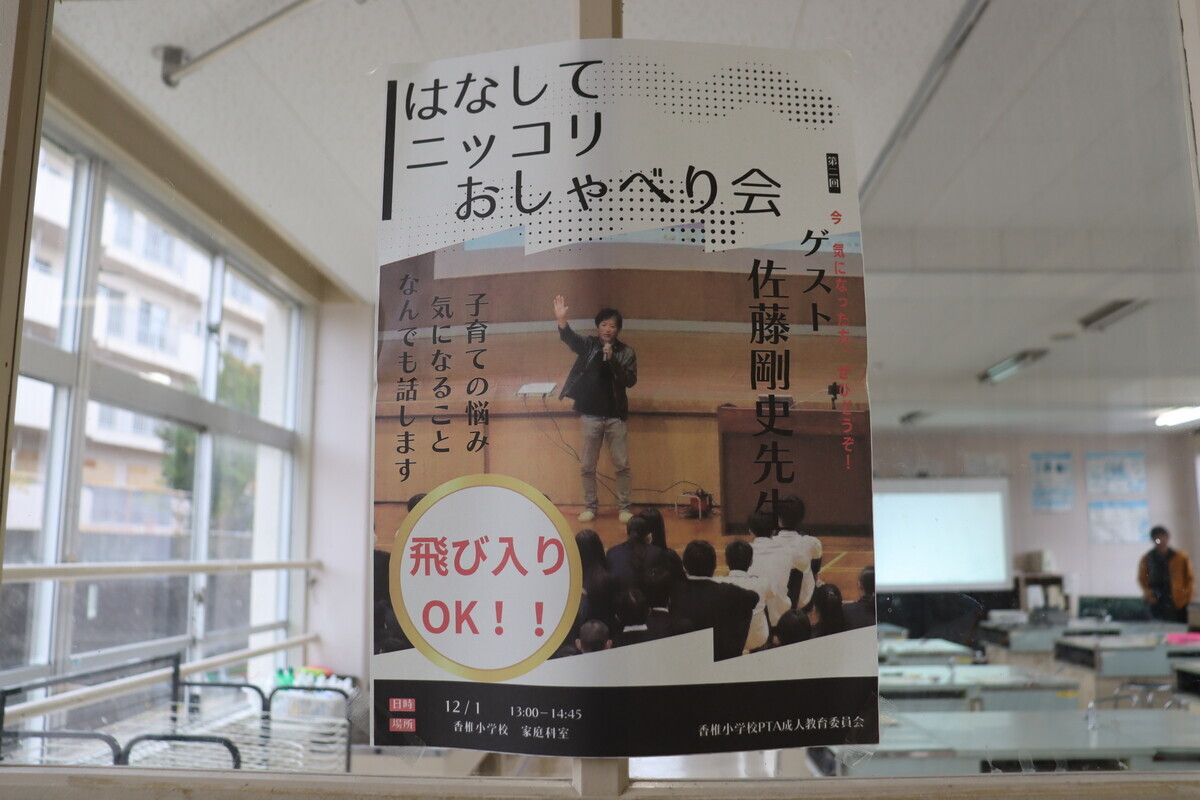 はなして
ニッコリ
おしゃべり会
第二回
今 気になった方 ぜひ会うぞ!
ゲスト
佐藤剛史先生
子育ての悩み
気になること
なんでも話します
飛び入り
OK!!
日時 12/1 13:00-14:45
場所 香椎小学校 家庭科室
香椎小学校PTA成人教育委員会